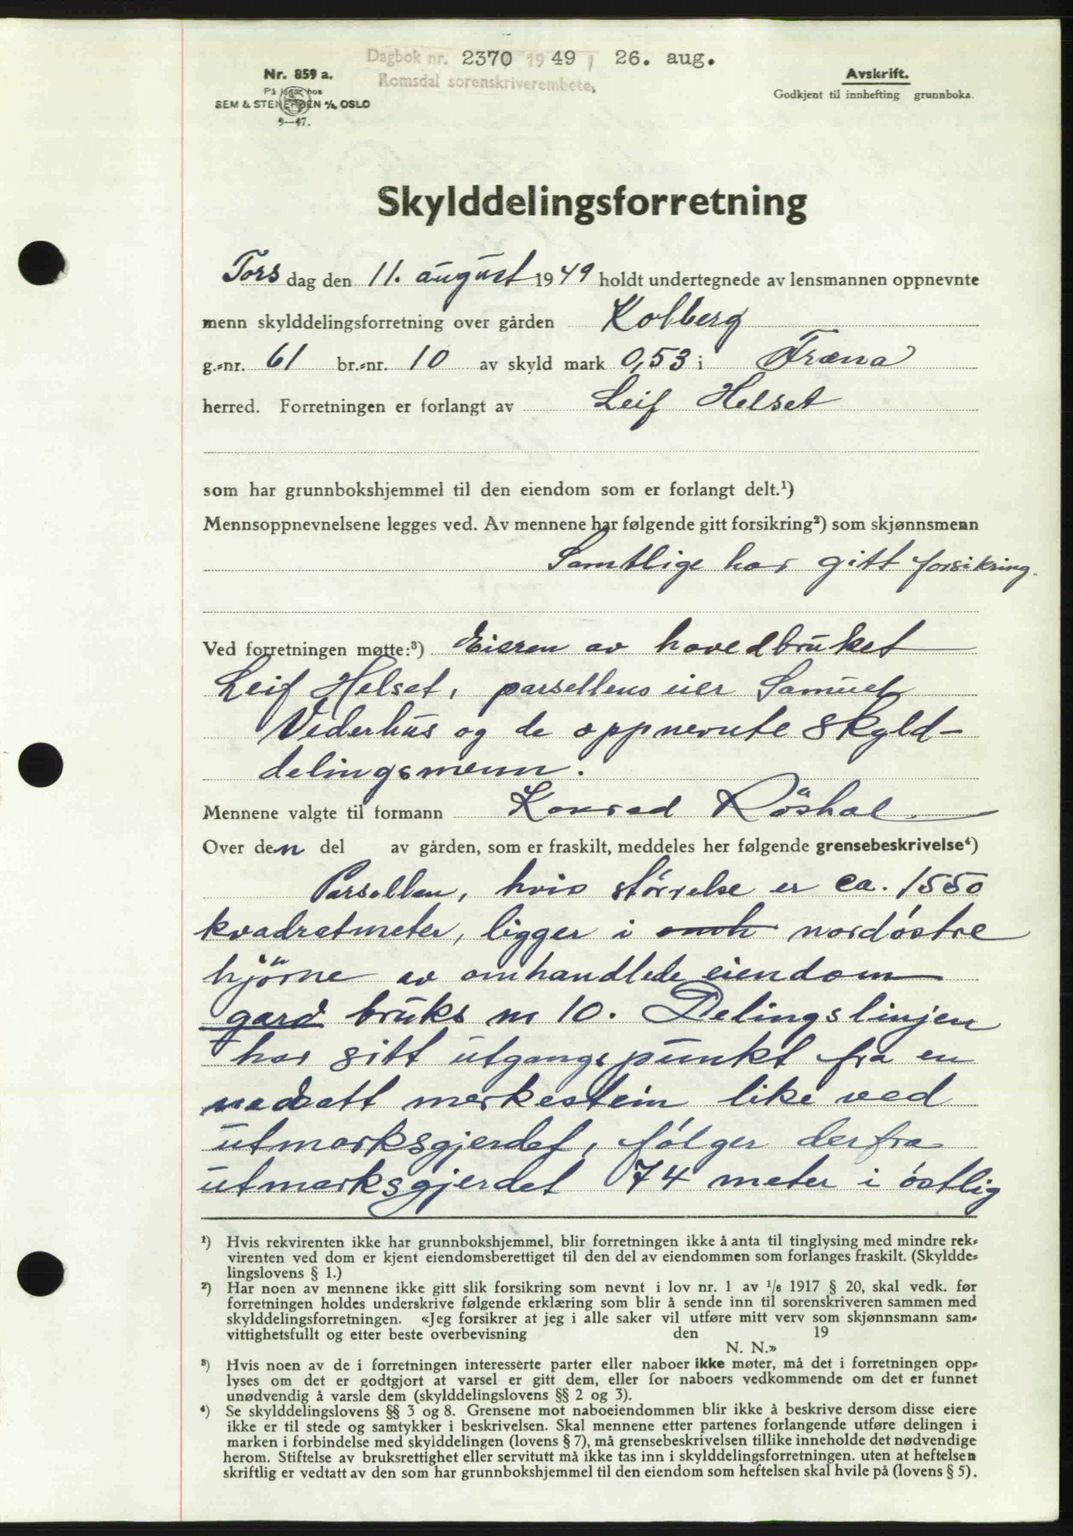 Dagbok nr. 2370 1949 / 26. aug.
Romsdal sorenskriverembete,
Nr. 859 a.
På lager hos
SEM & STENERSEN A/S, OSLO
9—47.
Avskrift.
Godkjent til innhefting grunnboka.
Skylddelingsforretning
Tors dag den 11. august 1949 holdt undertegnede av lensmannen oppnevnte
menn skylddelingsforretning over gården Kolberg
g.-nr. 61 br.-nr. 10 av skyld mark 0,53 i Fræna
herred. Forretningen er forlangt av Leif Helset
som har grunnbokshjemmel til den eiendom som er forlangt delt.¹)
Mennsoppnevnelsene legges ved. Av mennene har følgende gitt forsikring²) som skjønnsmenn
Samtlige har gitt forsikring.
Ved forretningen møtte:³) Eieren av hovedbruket
Leif Helset, parsellens eier Samuel
Viderhus og de oppnevnte skyld-
delingsmenn.
Mennene valgte til formann Konrad Röshol
Over den del av gården, som er fraskilt, meddeles her følgende grensebeskrivelse⁴)
Parsellen, hvis störrelse er ca. 1550
kvadratmeter, ligger i nordöstre
hjörne av omhandlede eiendom
gard bruks nr 10. Delingslinjen
har sitt utgangspunkt fra en
nedsatt merkestein like ved
utmarksgjerdet, fölger derfra
utmarksgjerdet 74 meter i östlig
¹) Hvis rekvirenten ikke har grunnbokshjemmel, blir forretningen ikke å anta til tinglysing med mindre rek-
virenten ved dom er kjent eiendomsberettiget til den del av eiendommen som forlanges fraskilt. (Skyldde-
lingslovens § 1.)
²) Har noen av mennene ikke gitt slik forsikring som nevnt i lov nr. 1 av 1/6 1917 § 20, skal vedk. før
forretningen holdes underskrive følgende erklæring som blir å sende inn til sorenskriveren sammen med
skylddelingsforretningen. «Jeg forsikrer at jeg i alle saker vil utføre mitt verv som skjønnsmann sam-
vittighetsfullt og etter beste overbevisning den 19
N. N.»
³) Hvis noen av de i forretningen interesserte parter eller naboer ikke møter, må det i forretningen opp-
lyses om det er godtgjort at varsel er gitt dem, eller for naboers vedkommende om det er funnet
unødvendig å varsle dem (skylddelingslovens §§ 2 og 3).
⁴) Se skylddelingslovens §§ 3 og 8. Grensene mot naboeiendommen blir ikke å beskrive dersom disse eiere
ikke er til stede og samtykker i beskrivelsen. Skal mennene etter partenes forlangende utføre delingen i
marken i forbindelse med skylddelingen (lovens § 7), må grensebeskrivelsen tillike inneholde det nødvendige
herom. Stiftelse av bruksrettighet eller servitutt må ikke tas inn i skylddelingsforretningen. uten at heftelsen
skriftlig er vedtatt av den som har grunnbokshjemmel til den eiendom som heftelsen skal hvile på (lovens § 5).